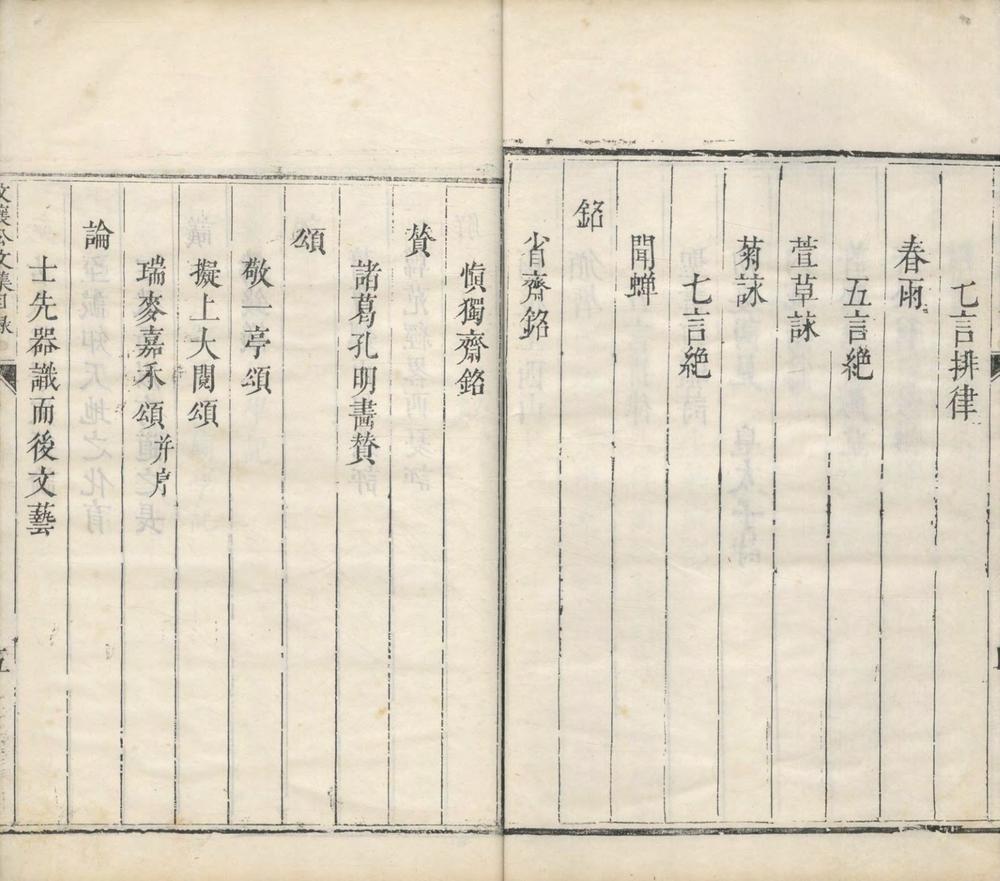 七言排律
春雨
五言絶
萱草詠
菊詠
七言絶
聞蟬
銘
省齋銘
愼獨齋銘
賛
諸葛孔明畫賛
頌
敬一亭頌
擬上大閱頌
瑞麥嘉禾頌并序
論
士先器識而後文藝
文襄公文集目錄
五